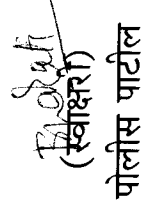 (स्वाक्षरी)
पोलीस पाटील